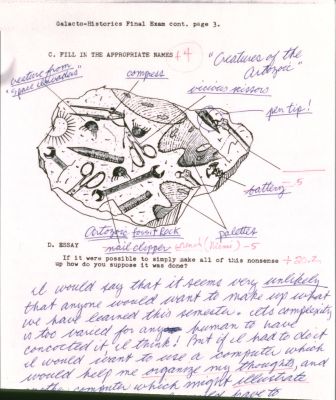 Galacto-Historics Final Exam cont. page 3.
C. FILL IN THE APPROPRIATE NAMES +4
"Creatures of the Artozoic"
creature from "Space Invaders"
compass
vicious scissors
pen tip!
battery -5
Artozoic fossil Rock
palettes
nail clipper wrench (Nome) -5
D. ESSAY
If it were possible to simply make all of this nonsense
up how do you suppose it was done?
I would say that it seems very unlikely
that anyone would want to make up what
we have learned this semester. It's complexity
is too varied for any human to have
concocted it I think! But if I had to do it
I would want to use a computer which
would help me organize my thoughts, and
another computer which might illustrate
have to